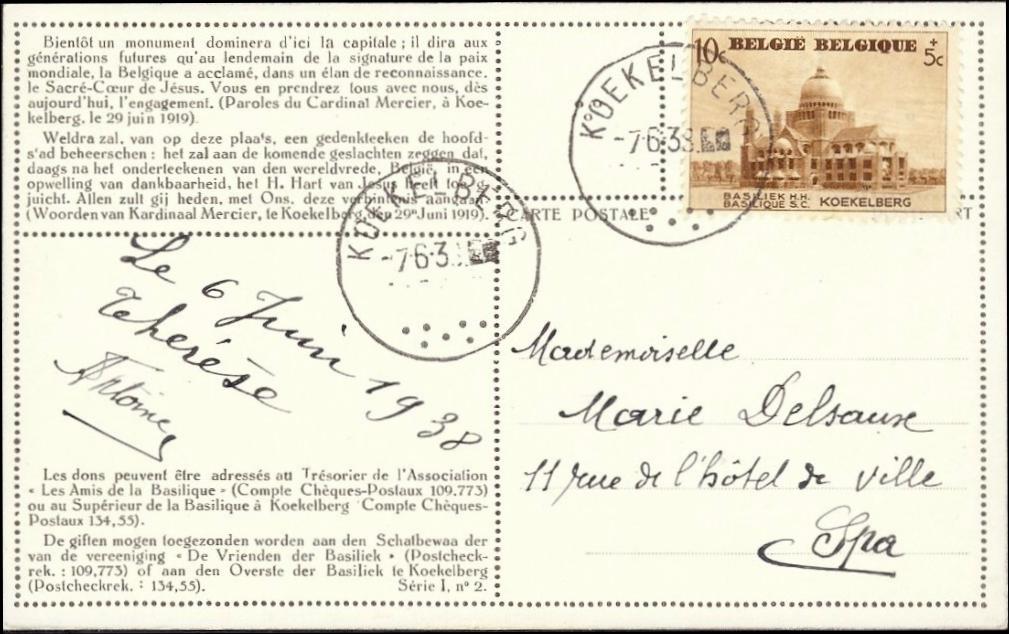 Bientôt un monument dominera d'ici la capitale ; il dira aux
générations futures qu'au lendemain de la signature de la paix
mondiale, la Belgique a acclamé, dans un élan de reconnaissance.
le Sacré-Cœur de Jésus. Vous en prendrez tous avec nous, dès
aujourd'hui, l'engagement. (Paroles du Cardinal Mercier, à Koe-
kelberg, le 29 juin 1919).
Weldra zal, van op deze plaats, een gedenkteeken de hoofd-
s'ad beheerschen : het zal aan de komende geslachten zeggen dat,
daags na het onderteekenen van den wereldvrede, België, in een
opwelling van dankbaarheid, het H. Hart van Jesus heeft toege-
juicht. Allen zult gij heden, met Ons, deze verbintenis aangaan
(Woorden van Kardinaal Mercier, te Koekelberg, den 29n Juni 1919).
10c BELGIË BELGIQUE + 5c
BASILIEK H.H.
BASILIQUE S.C. KOEKELBERG
KOEKELBERG
-7.6.38
KOEKELBERG
-7.6.3
CARTE POSTALE
Le 6 Juin 1938
Thérèse
Antoine
Mademoiselle
Marie Delsaux
11 rue de l'hôtel de ville
Spa
Les dons peuvent être adressés au Trésorier de l'Association
« Les Amis de la Basilique » (Compte Chèques-Postaux 109.773)
ou au Supérieur de la Basilique à Koekelberg Compte Chèques-
Postaux 134,55).
De giften mogen toegezonden worden aan den Schatbewaa der
van de vereeniging « De Vrienden der Basiliek » (Postcheck-
rek. : 109,773) of aan den Overste der Basiliek te Koekelberg
(Postcheckrek. : 134,55). Série I, n° 2.